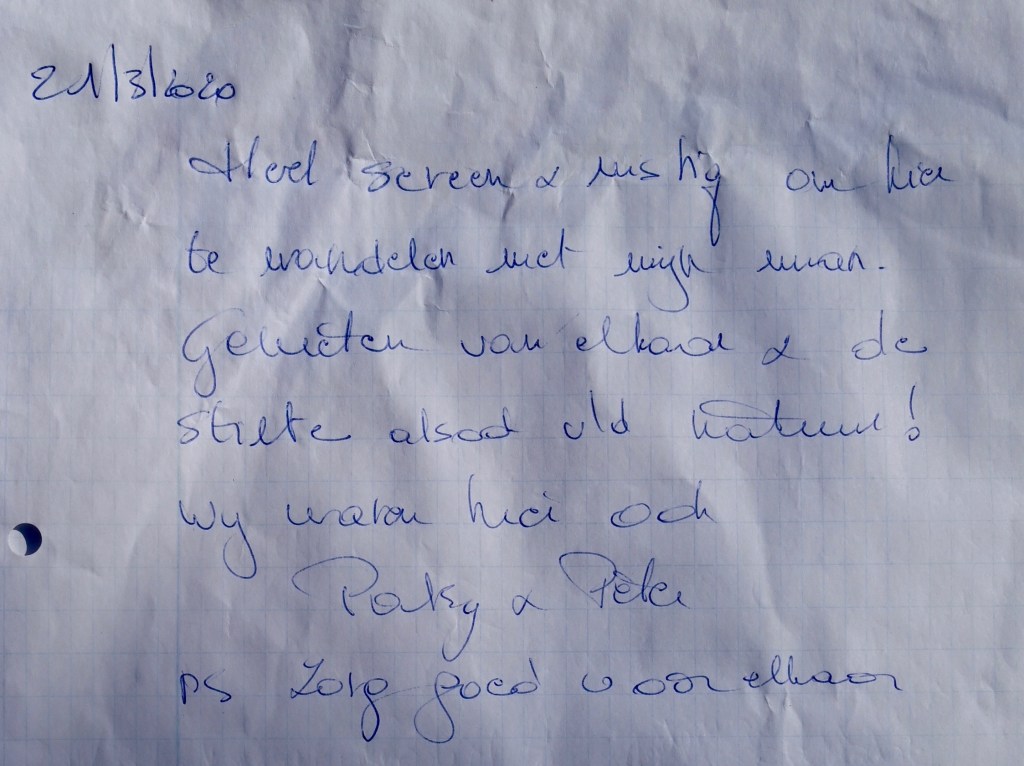 21/3/2020
Heel sereen & rustig om hier
te wandelen met mijn man.
Genieten van elkaar & de
stilte alsook v/d natuur!
Wij waren hier ook
Patsy & Peter
ps Zorg goed voor elkaar